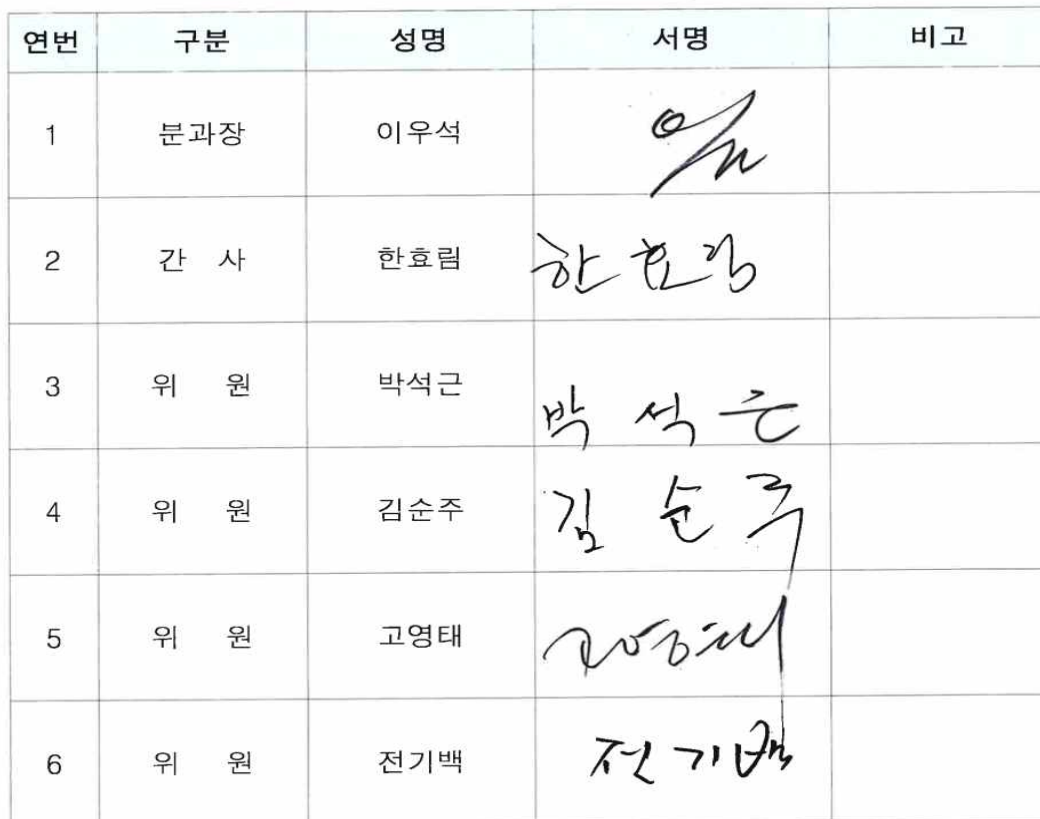 연번 구분 성명 서명 비고
1 분과장 이우석
2 간 사 한효림 한효림
3 위 원 박석근 박석근
4 위 원 김순주 김순주
5 위 원 고영태 고영태
6 위 원 전기백 전기백